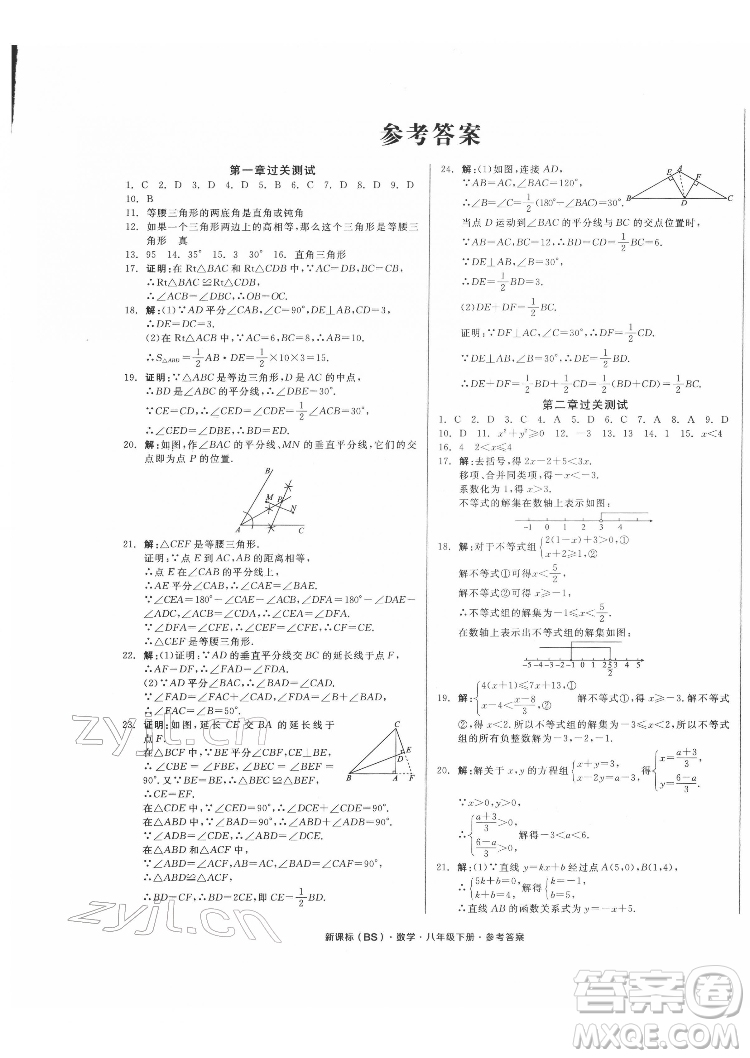 参考答案
第一章过关测试
1. C 2. D 3. D 4. D 5. D 6. D 7. C 8. D 9. D
10. B
11. 等腰三角形的两底角是直角或钝角
12. 如果一个三角形两边上的高相等，那么这个三角形是等腰三
角形 真
13. 95 14. 35° 15. 3 30° 16. 直角三角形
17. 证明：在Rt△BAC和Rt△CDB中，
∴Rt△BAC≌Rt△CDB，
∴∠ACB=∠DBC，∴OB=OC.
18. 解：(1)∵AD平分∠CAB，DE⊥AB，∠C=90°，
∴DE=DC=3.
(2)在Rt△ACB中，∵AC=6，BC=8，∴AB=10.
∴S△ABD=1/2AB·DE=1/2×10×3=15.
19. 证明：∵△ABC是等边三角形，D是AC的中点，
∴BD是∠ABC的平分线，∴∠DBC=30°.
∵CE=CD，∴∠E=∠CDE=1/2∠ACB=30°，
∴∠DBC=∠E，∴BD=ED.
20. 解：如图，作∠BAC的平分线、MN的垂直平分线，它们的交
点即为点P的位置.
B
M P
N
A C
21. 解：△CEF是等腰三角形.
证明：∵点E到AC，AB的距离相等，
∴点E在∠CAB的平分线上，
∴AE平分∠CAB，∴∠CAE=∠BAE.
∵∠CEA=180°-∠CAE-∠ACB，∠DFA=180°-∠DAE-
∠ADC，∠ACB=∠ADC，∴∠CEA=∠DFA.
∵∠DFA=∠CFE，∴∠CFE=∠CEF，∴CF=CE.
∴△CEF是等腰三角形.
22. 解：(1)证明：∵AD的垂直平分线交BC的延长线于点F，
∴AF=DF，∴∠FAD=∠FDA.
(2)∵AD平分∠BAC，∴∠BAD=∠CAD.
∵∠FAD=∠FDA，∠FAC=∠FAD-∠CAD，∠B=∠FDA-
∠BAD，∴∠FAC=∠B=50°.
23. 证明：如图，延长CE交BA的延长线于
点F.
C
E
D
B A F
在△BCF中，∵BE平分∠FBC，CE⊥BE，
∴∠BCF=∠BFC，∴△BCF是等腰三角
形.又∵BE⊥CF，∴BE是CF边的中线，
∴CE=EF.
在△CDE中，∵∠CED=90°，∴∠ECD+∠CDE=90°.
在△ADB中，∵∠BAD=90°，∴∠ADB+∠ABD=90°.
∵∠ADB=∠CDE，∴∠ABD=∠ACF.
在△ADB和△ACF中，
∵∠ABD=∠ACF，AB=AC，∠BAD=∠CAF=90°，
∴△ADB≌△ACF，
∴BD=CF，∴BD=CE+EF=2CE，∴CE=1/2BD.
24. 解：(1)如图，连接AD，
∵AB=AC，∠BAC=120°，
∴∠B=∠C=1/2(180°-∠BAC)=30°.
A
E F
B D C
当点D运动到∠BAC的平分线与BC的交点位置时，
∵AB=AC，BC=12，∴BD=DC=1/2BC=6.
∵DE⊥AB，∠B=30°，
∴DE=1/2BD=3.
(2)DE+DF=1/2BC，
证明：∵DF⊥AC，∠C=30°，∴DF=1/2DC.
∵DE=1/2BD，
∴DE+DF=1/2BD+1/2DC=1/2BC.
第二章过关测试
1. C 2. D 3. C 4. D 5. A 6. C 7. A 8. A 9. D
10. D 11. x²+y²≥0 12. ＞ 13. ＞ 14. -3 15. x<4
16. 4 2<x≤4
17. 解：去括号，得2x-2+5<3x.
移项、合并同类项，得-x<-3.
系数化为1，得x>3.
不等式的解集在数轴上表示如图：
-1 0 1 2 3 4
18. 解：对于不等式组{2(1-x)+3>0，① x+2≥1，②
解不等式①可得x<5/2，
解不等式②可得x≥-1，
∴不等式组的解集为-1≤x<5/2.
在数轴上表示出不等式组的解集如图：
-5 -4 -3 -2 -1 0 1 2 5/2 3 4 5
19. 解：{4(x+1)≤7x+13，① x-4<(x-8)/3，② 解不等式①，得x≥-3，解不等式
②，得x<2，所以不等式组的解集为-3≤x<2，所以不等式组
的所有负整数解为-3，-2，-1.
20. 解：解关于x，y的方程组{x+y=3，x-2y=a-3，得{x=(a+3)/3，y=(6-a)/3.
∵x>0，y>0，
∴{(a+3)/3>0，(6-a)/3>0，解得-3<a<6.
21. 解：(1)∵直线y=kx+b经过点A(5，0)，B(1，4)，
∴{5k+b=0，k+b=4，解得{k=-1，b=5.
∴直线AB的函数关系式为y=-x+5.
新课标（BS）·数学·八年级下册·参考答案
zyjl.cn
zyjl.cn
答案圈
MXQE.COM